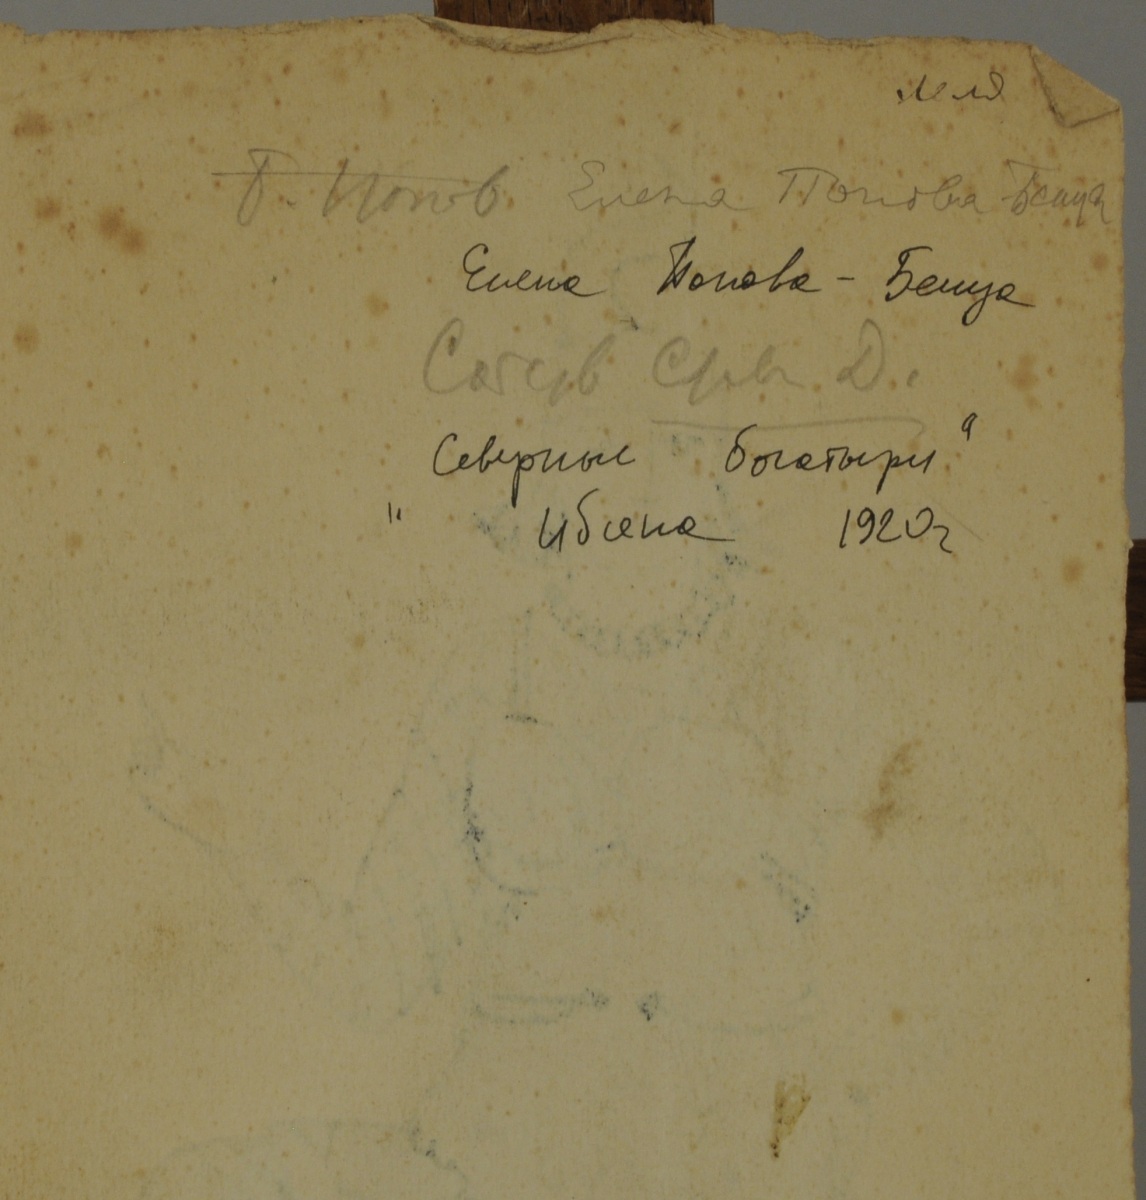 Леля
Б. Попов Елена Попова-Бенца
Елена Попова - Бенца
Северные богатыри"
" Ибсена 1920г